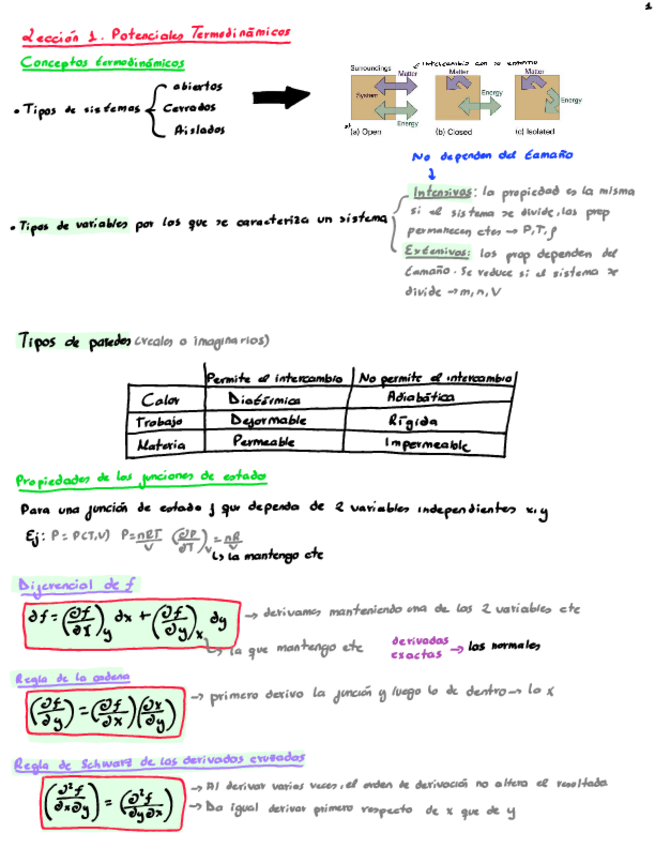 1
Lección 1. Potenciales Termodinámicos
Conceptos termodinámicos
• Tipos de sistemas { abiertos
Cerrados
Aislados
Intercambio con su entorno
Surroundings
Matter
Matter
Matter
System
Energy
Energy
Energy
(a) Open
(b) Closed
(c) Isolated
No dependen del tamaño
↓
• Tipos de variables por las que se caracteriza un sistema
Intensivas: la propiedad es la misma
si el sistema se divide, las prop
permanecen ctes → P, T, ρ
Extensivas: las prop dependen del
tamaño. Se reduce si el sistema se
divide → m, n, V
Tipos de paredes (reales o imaginarios)
Permite el intercambio | No permite el intercambio
Calor | Diatérmica | Adiabática
Trabajo | Deformable | Rígida
Materia | Permeable | Impermeable
Propiedades de las funciones de estado
Para una función de estado f que dependa de 2 variables independientes x, y
Ej: P = P(T,V) P = nRT/V (∂P/∂T)v = nR/V
↳ la mantengo cte
Diferencial de f
∂f = (∂f/∂x)y ∂x + (∂f/∂y)x ∂y → derivamos manteniendo una de las 2 variables cte
↳ la que mantengo cte
derivadas exactas → las normales
Regla de la cadena
(∂f/∂y) = (∂f/∂x)(∂x/∂y) → primero derivo la función y luego lo de dentro → la x
Regla de Schwarz de las derivadas cruzadas
(∂²f/∂x∂y) = (∂²f/∂y∂x) → Al derivar varias veces, el orden de derivación no altera el resultado
→ Da igual derivar primero respecto de x que de y